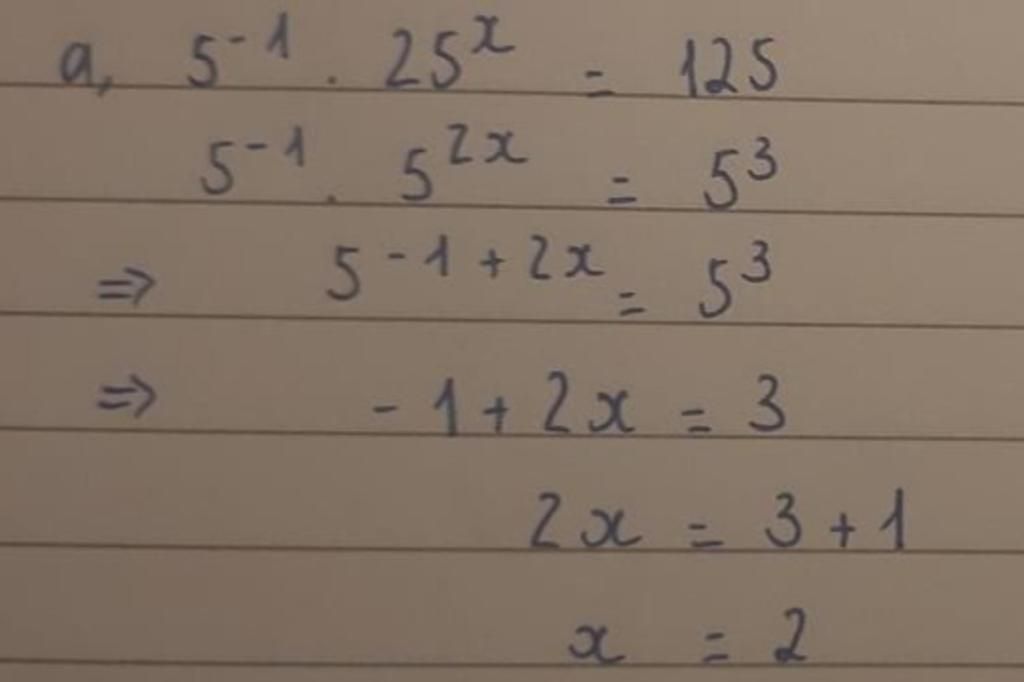 a, 5⁻¹ . 25ˣ = 125
5⁻¹ . 5²ˣ = 5³
⇒ 5⁻¹⁺²ˣ = 5³
⇒ -1 + 2x = 3
2x = 3 + 1
x = 2